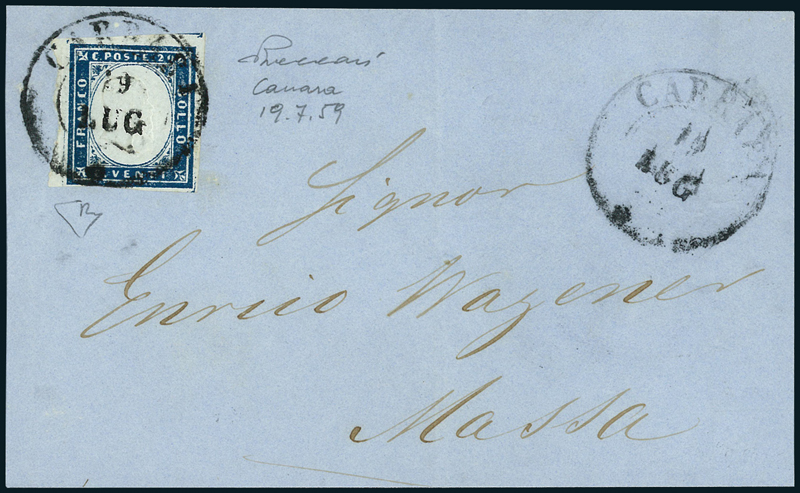 CARRARA
19
LUG
C. POSTE 20
FRANCO
BOLLO
VENTI
Carrara
19.7.59
CARRARA
19
LUG
Signor
Enrico Wagener
Massa